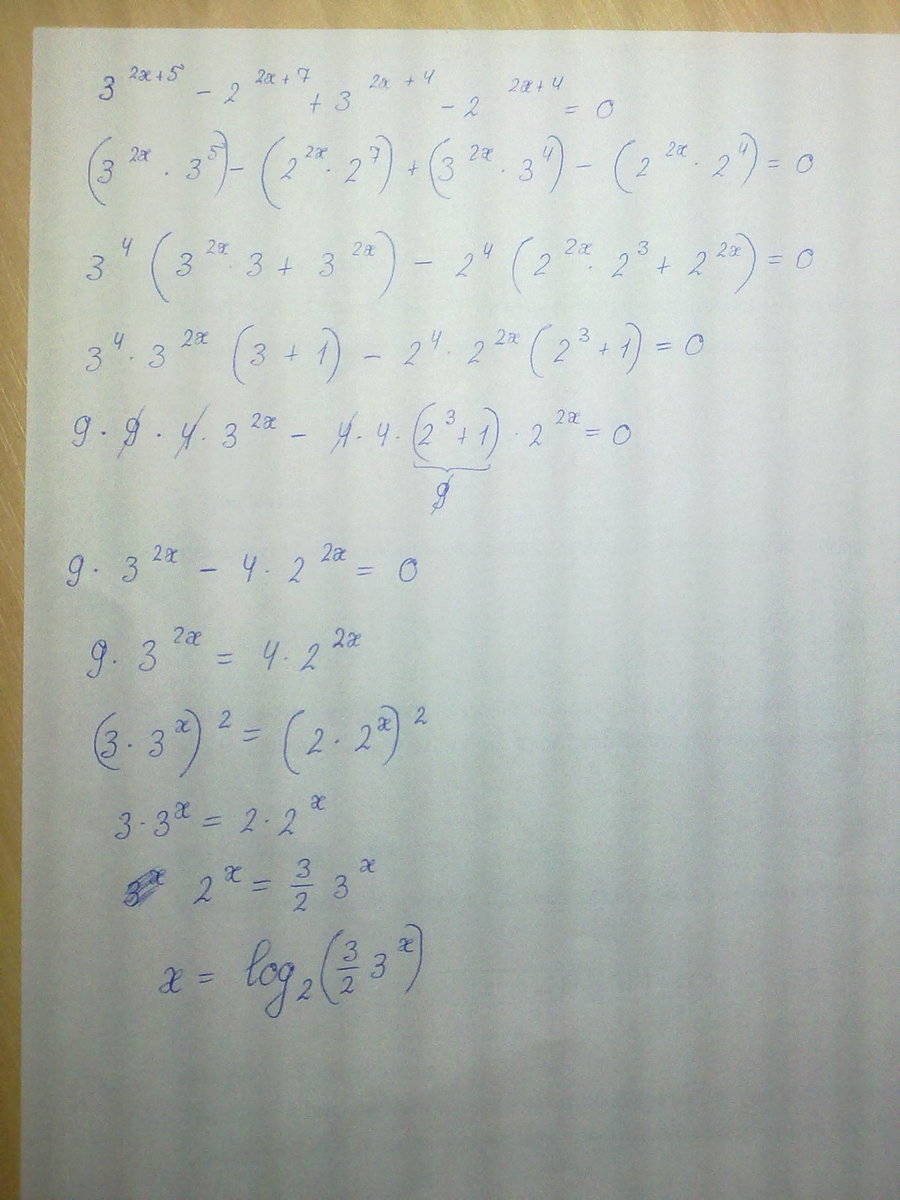 3^{2x+5} - 2^{2x+7} + 3^{2x+4} - 2^{2x+4} = 0
(3^{2x} · 3^5) - (2^{2x} · 2^7) + (3^{2x} · 3^4) - (2^{2x} · 2^4) = 0
3^4 (3^{2x} · 3 + 3^{2x}) - 2^4 (2^{2x} · 2^3 + 2^{2x}) = 0
3^4 · 3^{2x} (3 + 1) - 2^4 · 2^{2x} (2^3 + 1) = 0
9 · 9 · 4 · 3^{2x} - 4 · 4 · (2^3 + 1) · 2^{2x} = 0
9
9 · 3^{2x} - 4 · 2^{2x} = 0
9 · 3^{2x} = 4 · 2^{2x}
(3 · 3^x)^2 = (2 · 2^x)^2
3 · 3^x = 2 · 2^x
2^x = \frac{3}{2} 3^x
x = log_2 (\frac{3}{2} 3^x)